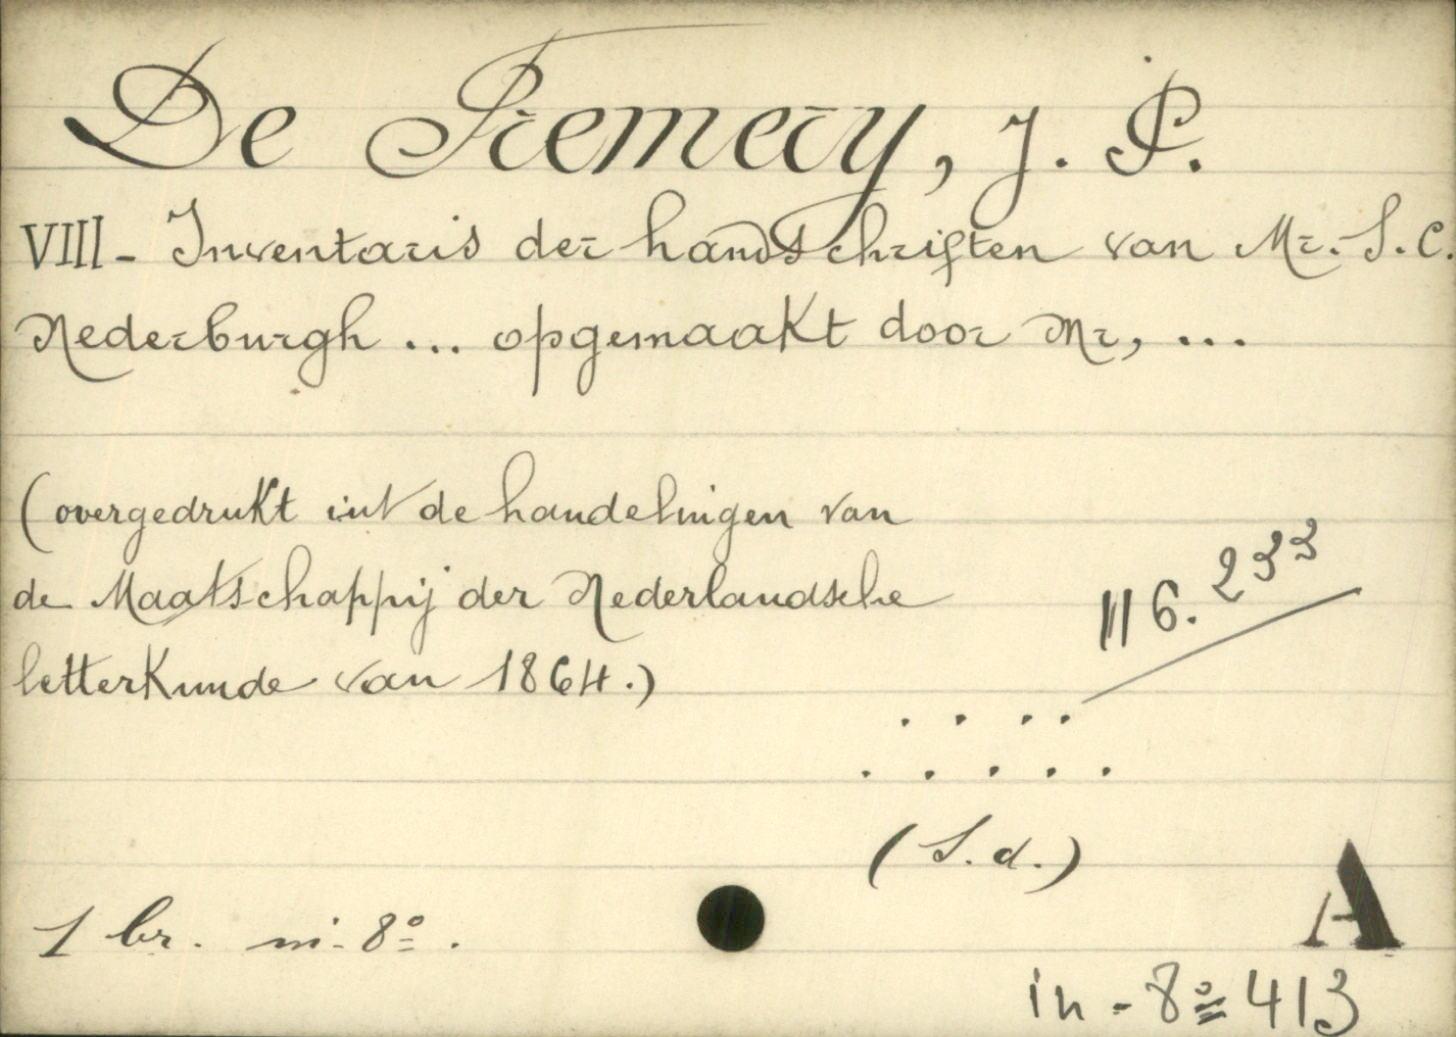 De Fremery, J. P.
VIII - Inventaris der handschriften van Mr. S. C.
Nederburgh ... opgemaakt door Mr, ...
(overgedrukt uit de handelingen van
de Maatschappij der Nederlandsche
letterkunde van 1864.)
III 6. 233
. . . .
. . . . .
(S. d.)
A
1 br. in-8º.
in-8º 413